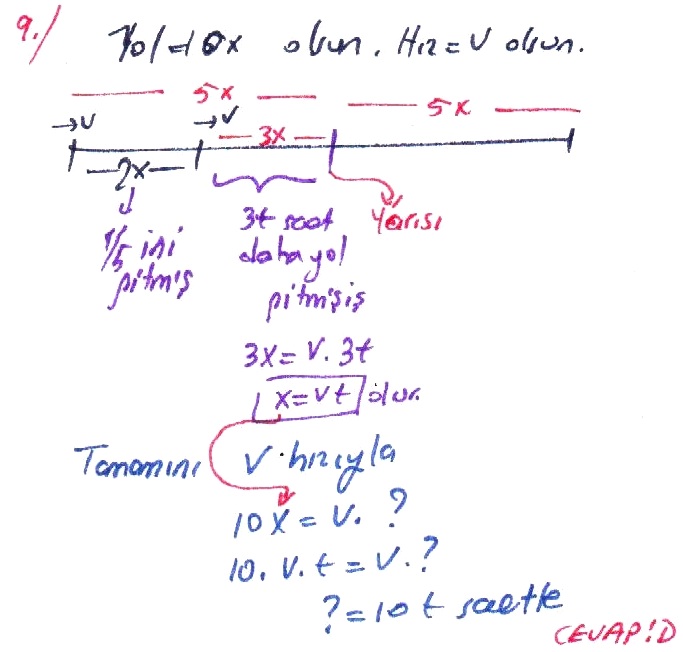 9./ Yol=10x olsun. Hız=V olsun.
5x
5x
→V →V
3x
2x
1/5 ini
gitmiş
3t saat
daha yol
gitmişis
Yarısı
3x=V.3t
x=Vt olur
Tamamını V hızıyla
10x=V.?
10.V.t=V.?
?=10t saatte
CEVAP:D